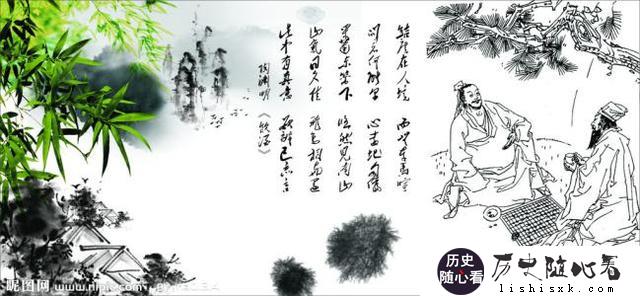 结庐在人境 而无车马喧
问君何能尔 心远地自偏
采菊东篱下 悠然见南山
山气日夕佳 飞鸟相与还
此中有真意 欲辨已忘言
陶渊明《饮酒》
昵图网 www.nipic.com
历史
随心看
历史随心看
lishisxk.com